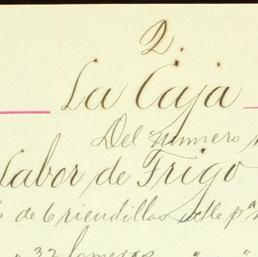 2.
La Caja
Del numero
Labor de Frigo
de 6 riendillas
32 lomeros " "